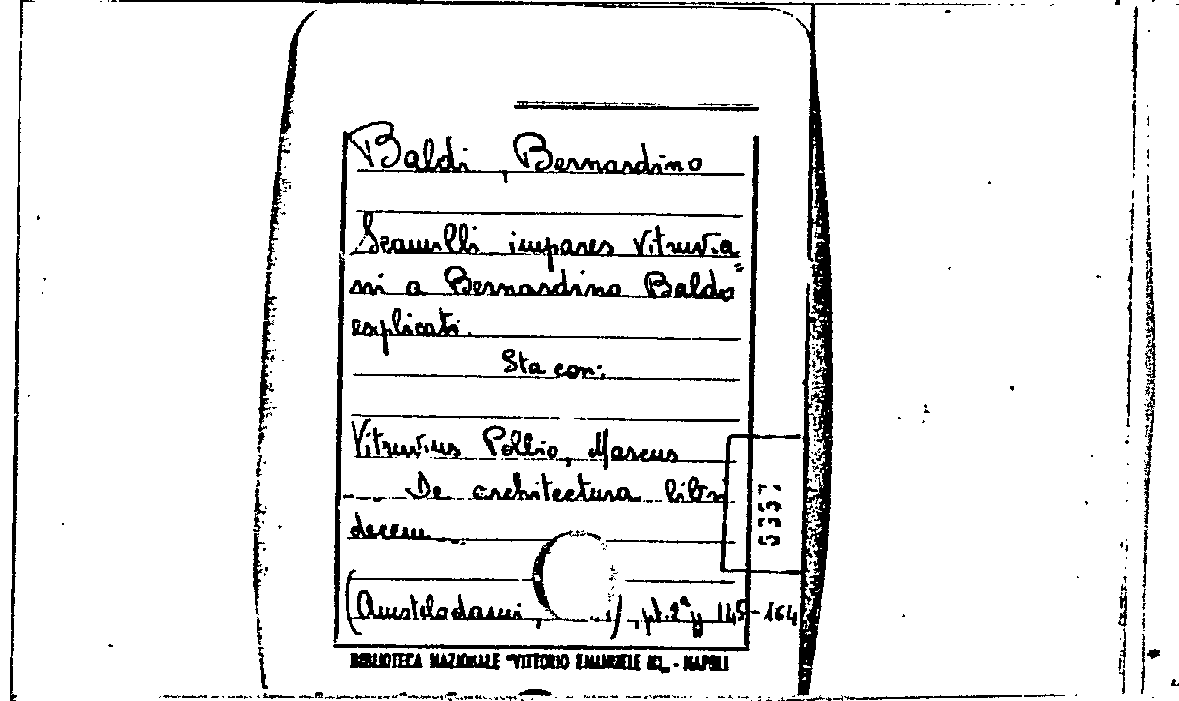 Baldi, Bernardino
Scamilli impares Vitruvia
ni a Bernardino Baldo
explicati.
Sta con:
Vitruvius Pollio, Marcus
De architectura libri
decem
(Amstelodami, ), pt. 2ª p 145-164
BIBLIOTECA NAZIONALE "VITTORIO EMANUELE III" - NAPOLI